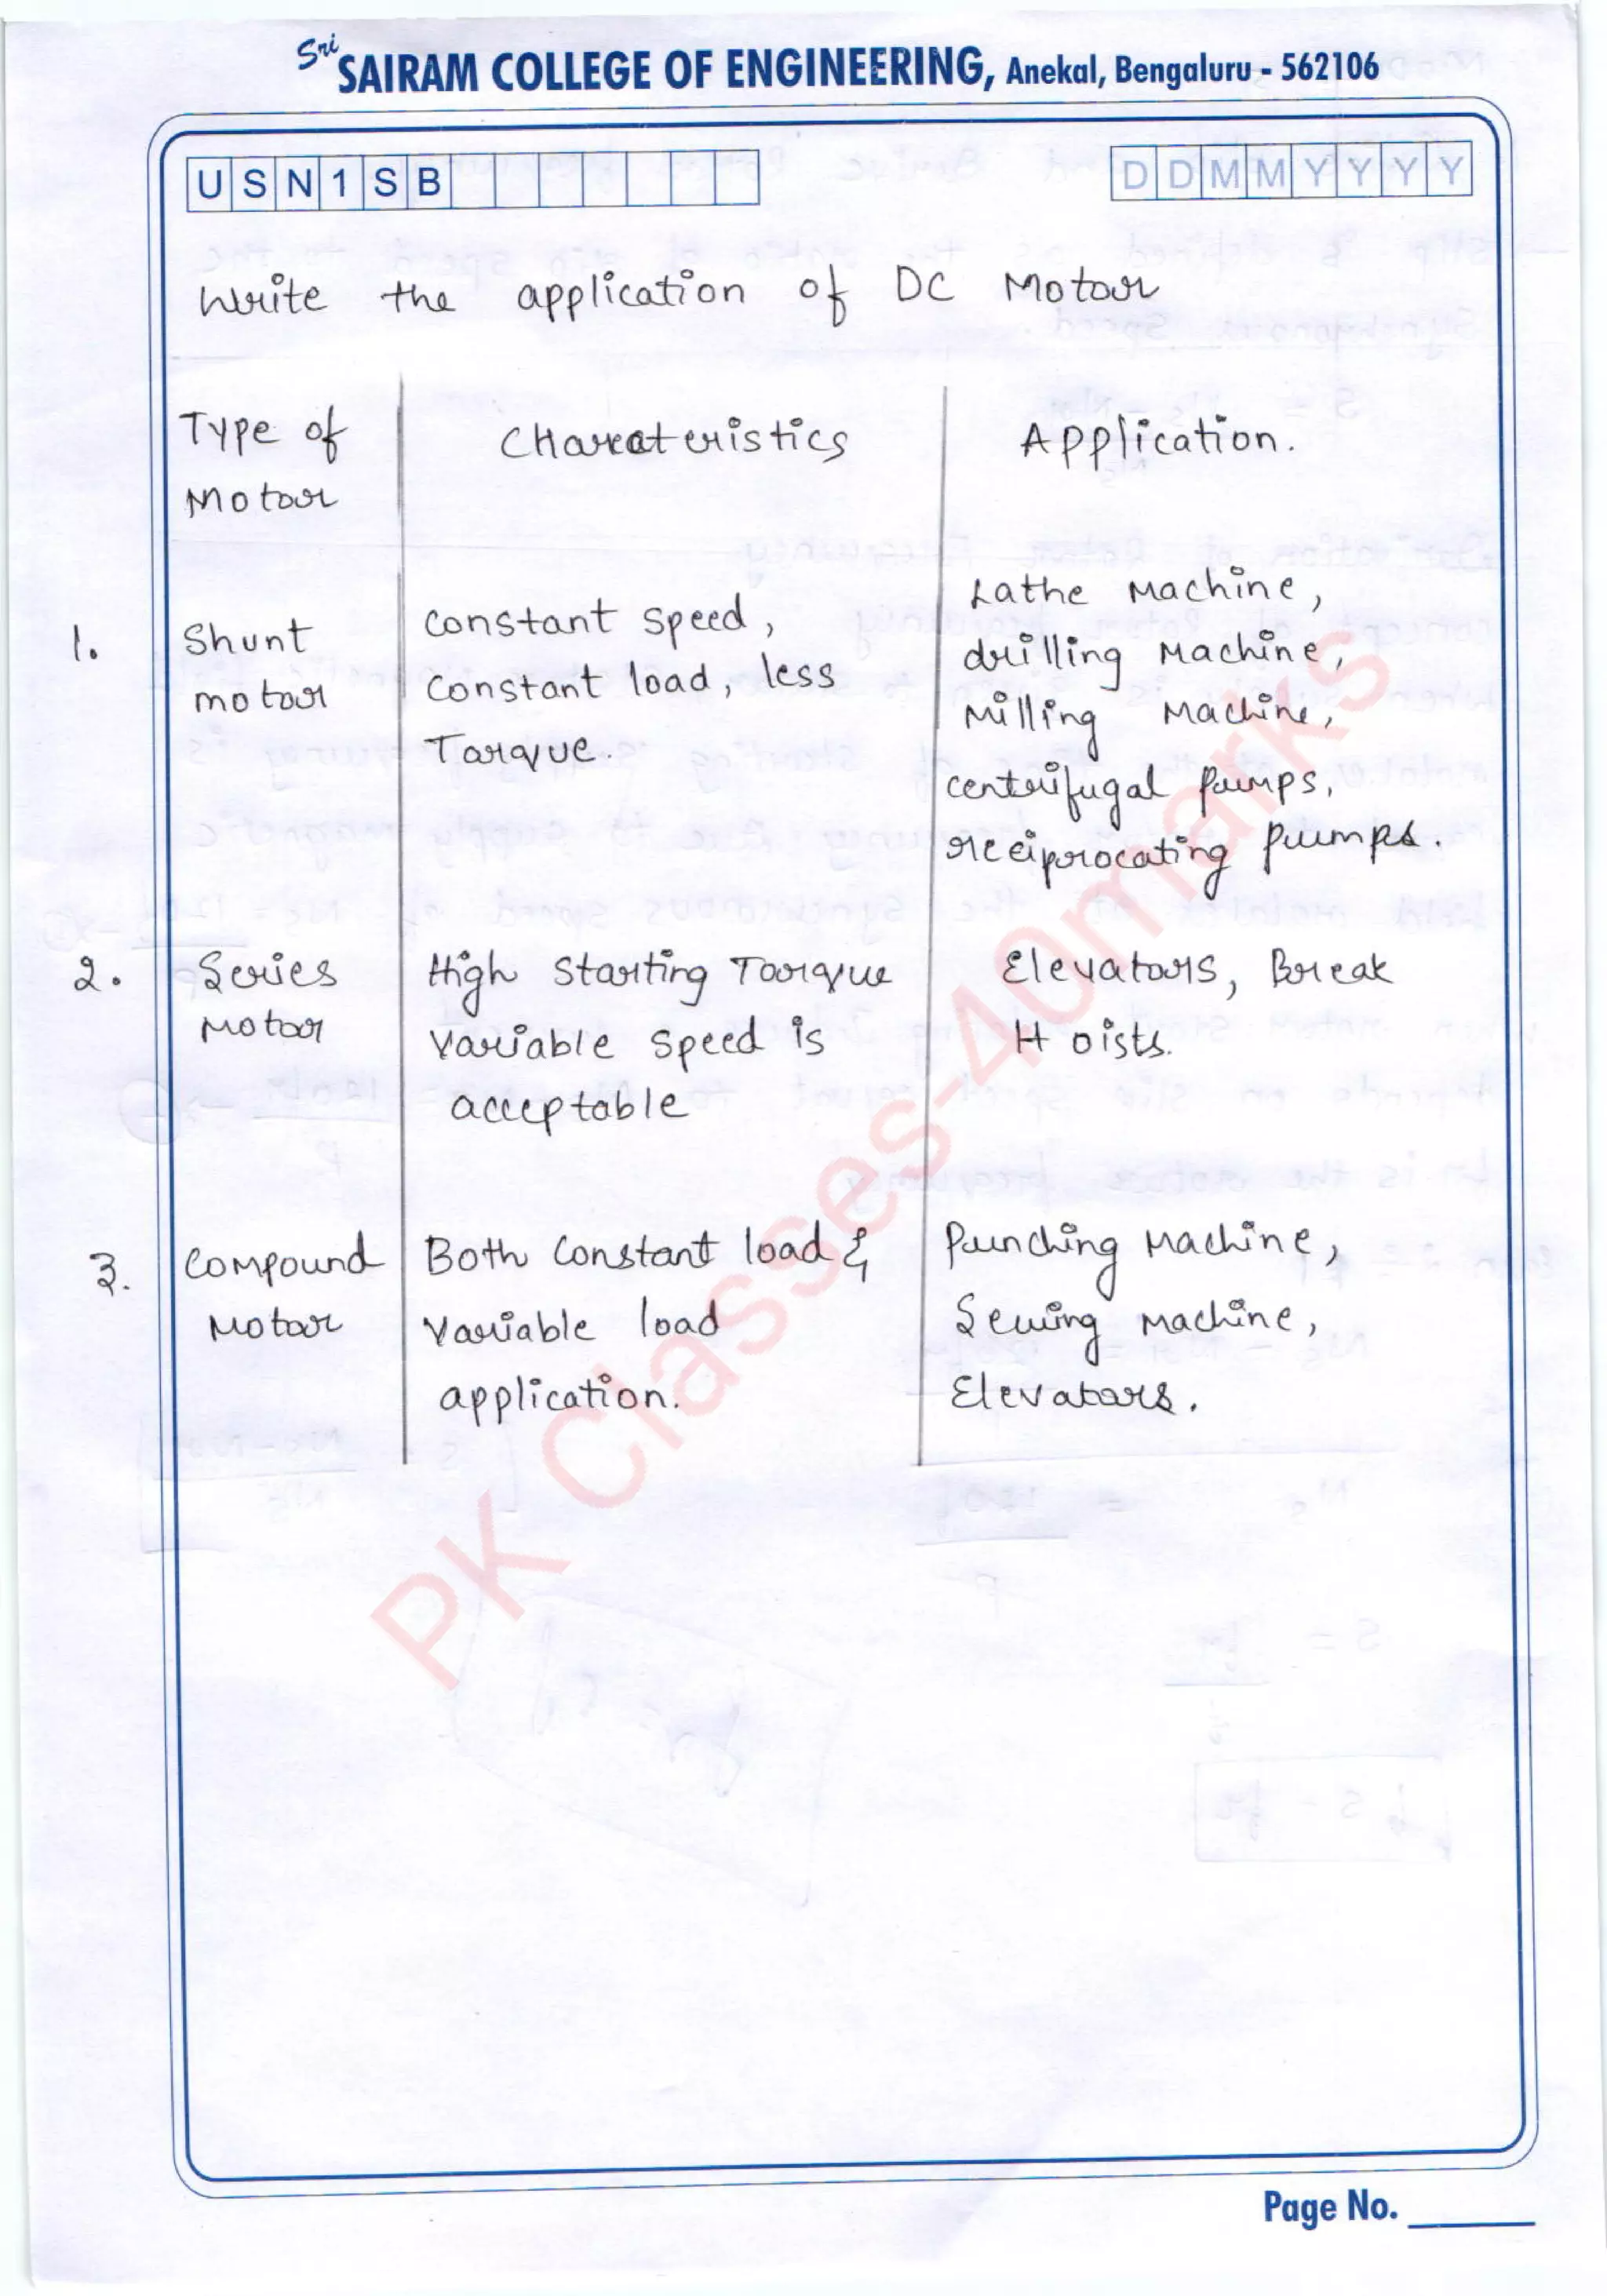 Sri SAIRAM COLLEGE OF ENGINEERING, Anekal, Bengaluru - 562106
USN1SB
DDMMYYYY
Write the application of DC Motor
Type of Motor | Charecteristics | Application.
1. Shunt motor | Constant speed, Constant load, less Torque. | Lathe Machine, drilling Machine, Milling Machine, centrifugal Pumps, reciprocating Pumps.
2. Series Motor | High Starting Torque Variable speed is acceptable | Elevators, Break Hoists.
3. Compound Motor | Both Constant load & Variable load application. | Punching Machine, Sewing Machine, Elevators.
PK Classes-40marks
Page No.